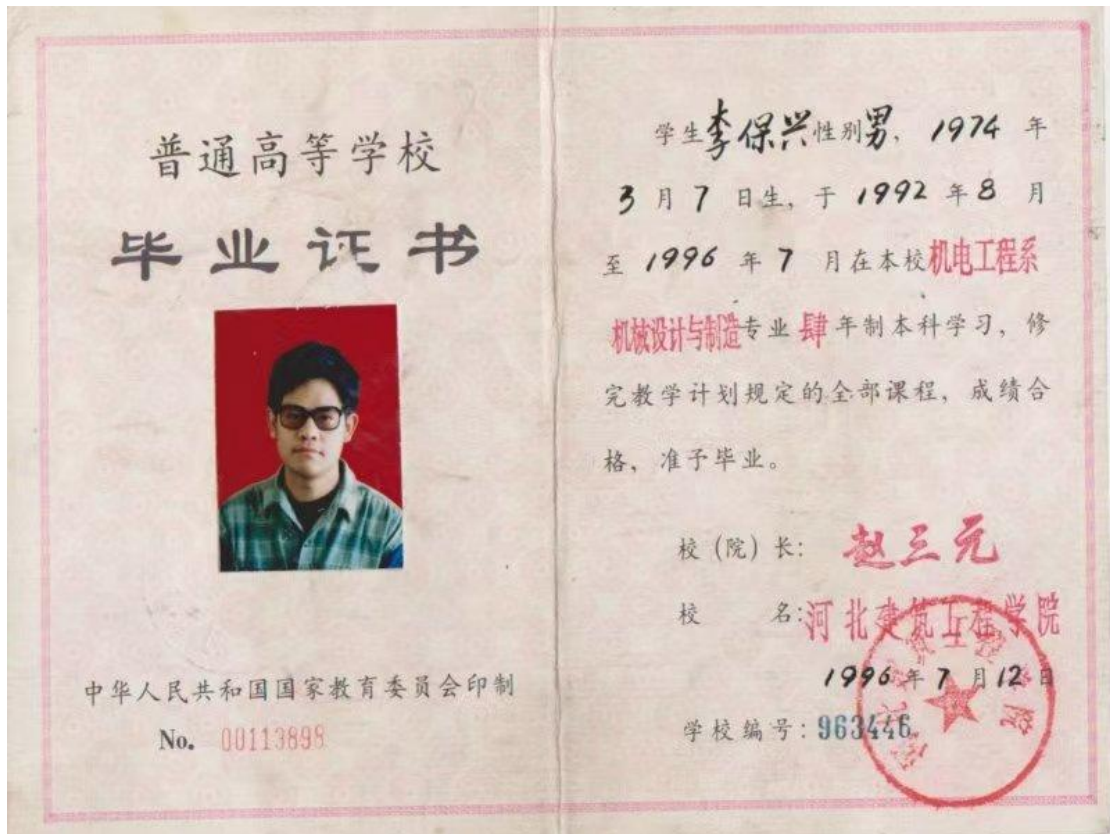 普通高等学校
毕业证书
中华人民共和国国家教育委员会印制
No. 00113898
学生李保兴性别男，1974年
3月7日生，于1992年8月
至1996年7月在本校机电工程系
机械设计与制造专业肆年制本科学习，修
完教学计划规定的全部课程，成绩合
格，准予毕业。
校（院）长：赵三元
校名：河北建筑工程学院
1996年7月12日
学校编号：963446
河北建筑工程学院